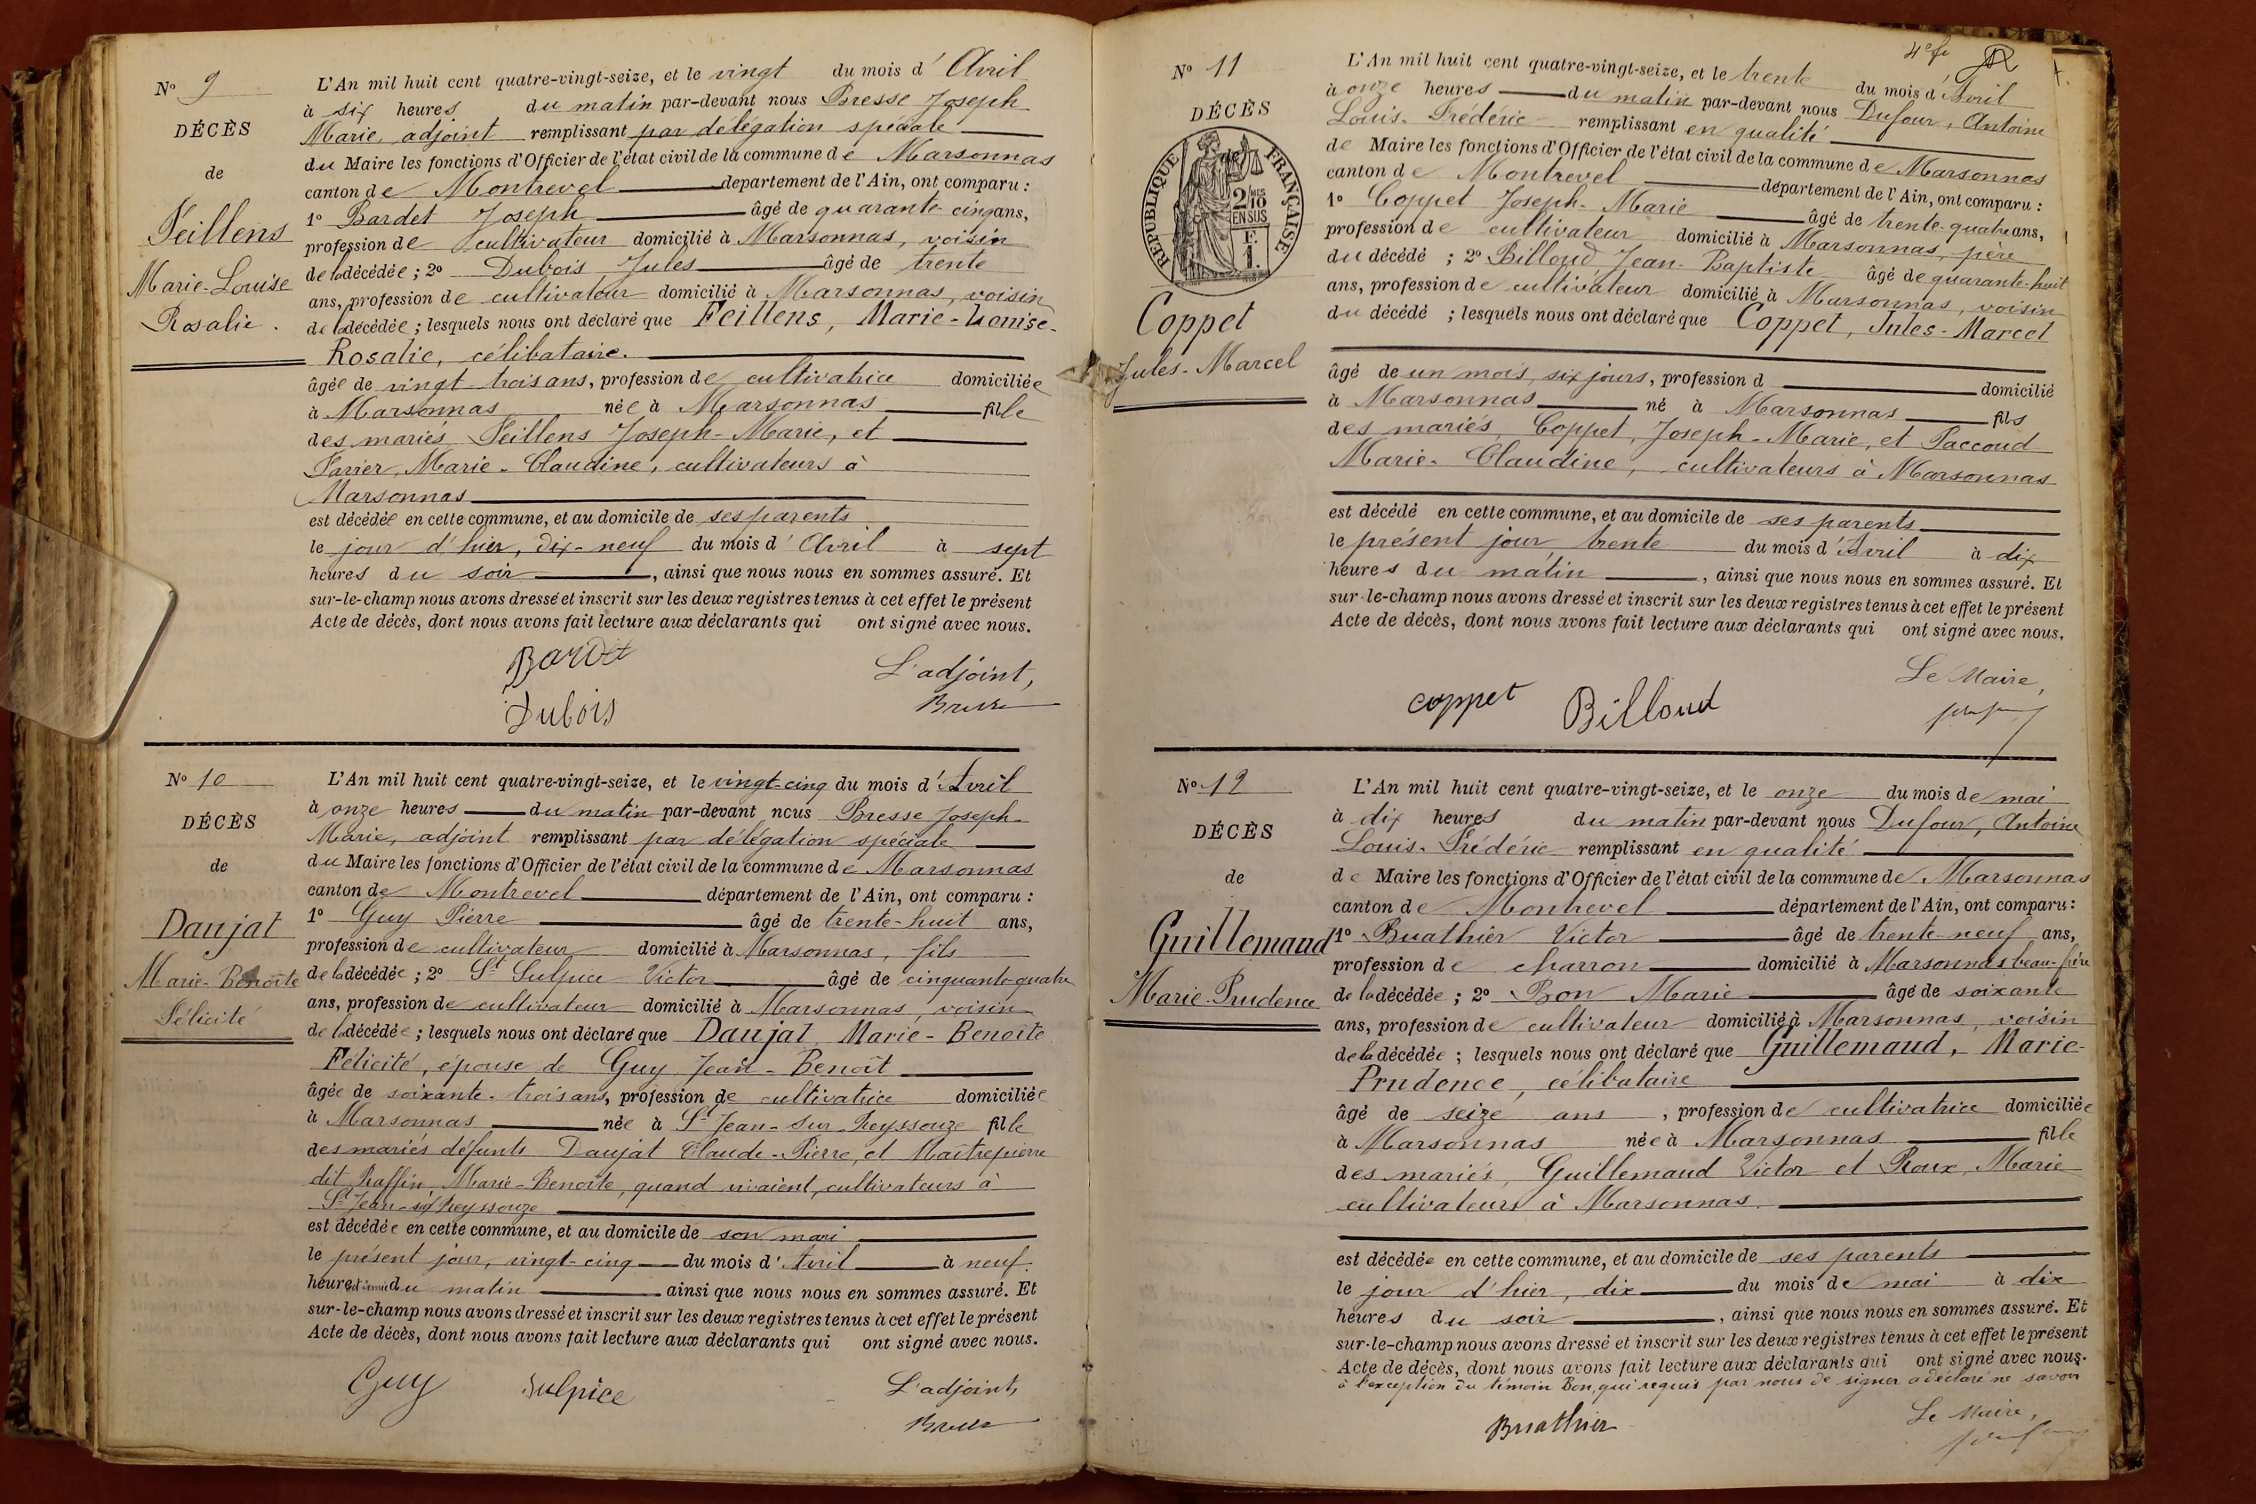 N° 9
DÉCÈS
de
Feillens
Marie-Louise
Rosalie.
L'An mil huit cent quatre-vingt-seize, et le vingt du mois d'Avril
à six heures du matin par-devant nous Bresse Joseph
Marie, adjoint remplissant par délégation spéciale
du Maire les fonctions d'Officier de l'état civil de la commune de Marsonnas
canton de Montrevel département de l'Ain, ont comparu :
1° Bardet Joseph âgé de quarante-cinq ans,
profession de cultivateur domicilié à Marsonnas, voisin
de la décédée ; 2° Dubois Jules âgé de trente
ans, profession de cultivateur domicilié à Marsonnas, voisin
de la décédée ; lesquels nous ont déclaré que Feillens, Marie-Louise-
Rosalie, célibataire.
âgée de vingt-trois ans, profession de cultivatrice domiciliée
à Marsonnas née à Marsonnas fille
des mariés Feillens Joseph-Marie, et
Favier, Marie-Claudine, cultivateurs à
Marsonnas
est décédée en cette commune, et au domicile de ses parents
le jour d'hier, dix-neuf du mois d'Avril à sept
heures du soir , ainsi que nous nous en sommes assuré. Et
sur-le-champ nous avons dressé et inscrit sur les deux registres tenus à cet effet le présent
Acte de décès, dont nous avons fait lecture aux déclarants qui ont signé avec nous.
Bardet
L'adjoint,
Dubois
Bresse
N° 10
DÉCÈS
de
Daujat
Marie-Benoîte
Félicité
L'An mil huit cent quatre-vingt-seize, et le vingt-cinq du mois d'Avril
à onze heures du matin par-devant nous Bresse Joseph-
Marie, adjoint remplissant par délégation spéciale
du Maire les fonctions d'Officier de l'état civil de la commune de Marsonnas
canton de Montrevel département de l'Ain, ont comparu :
1° Guy Pierre âgé de trente-huit ans,
profession de cultivateur domicilié à Marsonnas, fils
de la décédée ; 2° St Sulpice Victor âgé de cinquante-quatre
ans, profession de cultivateur domicilié à Marsonnas, voisin
de la décédée ; lesquels nous ont déclaré que Daujat Marie-Benoîte
Félicité, épouse de Guy Jean-Benoît
âgée de soixante-trois ans, profession de cultivatrice domiciliée
à Marsonnas née à St Jean-sur-Reyssouze fille
des mariés défunts Daujat Claude-Pierre, et Maîtrepierre
dit Raffin Marie-Benoîte, quand vivaient, cultivateurs à
St Jean-sur Reyssouze
est décédée en cette commune, et au domicile de son mari
le présent jour, vingt-cinq du mois d'Avril à neuf
heures et demie du matin ainsi que nous nous en sommes assuré. Et
sur-le-champ nous avons dressé et inscrit sur les deux registres tenus à cet effet le présent
Acte de décès, dont nous avons fait lecture aux déclarants qui ont signé avec nous.
Guy Sulpice L'adjoint,
Bresse
4e fe
N° 11
DÉCÈS
RÉPUBLIQUE FRANÇAISE
2/10 MES
EN SUS
F.
1.
Coppet
Jules-Marcel
L'An mil huit cent quatre-vingt-seize, et le trente du mois d'Avril
à onze heures du matin par-devant nous Dufour, Antoine
Louis-Frédéric remplissant en qualité
de Maire les fonctions d'Officier de l'état civil de la commune de Marsonnas
canton de Montrevel département de l'Ain, ont comparu :
1° Coppet Joseph-Marie âgé de trente-quatre ans,
profession de cultivateur domicilié à Marsonnas, père
du décédé ; 2° Billoud, Jean-Baptiste âgé de quarante-huit
ans, profession de cultivateur domicilié à Marsonnas, voisin
du décédé ; lesquels nous ont déclaré que Coppet, Jules-Marcel
âgé de un mois, six jours, profession d domicilié
à Marsonnas né à Marsonnas fils
des mariés, Coppet, Joseph-Marie, et Paccoud
Marie-Claudine, cultivateurs à Marsonnas
est décédé en cette commune, et au domicile de ses parents
le présent jour, trente du mois d'Avril à dix
heures du matin , ainsi que nous nous en sommes assuré. Et
sur-le-champ nous avons dressé et inscrit sur les deux registres tenus à cet effet le présent
Acte de décès, dont nous avons fait lecture aux déclarants qui ont signé avec nous.
Le Maire,
coppet Billoud
N° 12
DÉCÈS
de
Guillemaud
Marie-Prudence
L'An mil huit cent quatre-vingt-seize, et le onze du mois de mai
à dix heures du matin par-devant nous Dufour, Antoine
Louis-Frédéric remplissant en qualité
de Maire les fonctions d'Officier de l'état civil de la commune de Marsonnas
canton de Montrevel département de l'Ain, ont comparu :
1° Buathier Victor âgé de trente-neuf ans,
profession de charron domicilié à Marsonnas beau-frère
de la décédée ; 2° Bon Marie âgé de soixante
ans, profession de cultivateur domicilié à Marsonnas, voisin
de la décédée ; lesquels nous ont déclaré que Guillemaud, Marie-
Prudence, célibataire
âgé de seize ans , profession de cultivatrice domiciliée
à Marsonnas née à Marsonnas fille
des mariés, Guillemaud Victor et Roux, Marie
cultivateurs à Marsonnas.
est décédée en cette commune, et au domicile de ses parents
le jour d'hier, dix du mois de mai à dix
heures du soir , ainsi que nous nous en sommes assuré. Et
sur-le-champ nous avons dressé et inscrit sur les deux registres tenus à cet effet le présent
Acte de décès, dont nous avons fait lecture aux déclarants qui ont signé avec nous.
à l'exception du témoin Bon, qui requis par nous de signer a déclaré ne savoir
Le Maire,
Buathier